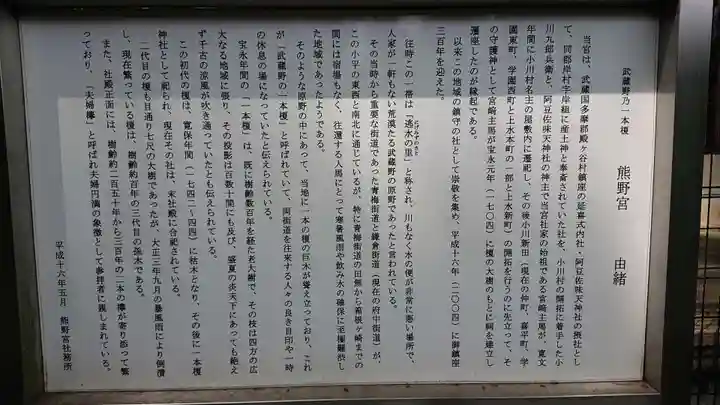 武蔵野乃一本榎 熊野宮 由緒
当宮は、武蔵国多摩郡殿ヶ谷村鎮座の延喜式内社・阿豆佐味天神社の摂社とし
て、同郡岸村字岸組に産土神と奉斎されていた社を、小川村の開拓に着手した小
川九郎兵衛と、阿豆佐味天神社の神主で当宮社家の始祖である宮崎主馬が、寛文
年間に小川村名主の屋敷内に遷祀し、その後小川新田（現在の仲町、喜平町、学
園東町、学園西町と上水本町の一部と上水新町）の開拓を行うのに先立って、そ
の守護神として宮崎主馬が宝永元年（一七〇四）に榎の大樹のもとに祠を建立し
遷座したのが縁起である。
以来この地域の鎮守の社として崇敬を集め、平成十六年（二〇〇四）に御鎮座
三百年を迎えた。
往時この一帯は「逃水の里」と称され、川もなく水の便が非常に悪い場所で、
人家が一軒もない荒漠たる武蔵野の原野であったと言われている。
その当時から重要な街道であった青梅街道と鎌倉街道（現在の府中街道）が、
この小平の東西と南北に通じているが、特に青梅街道の田無から箱根ヶ崎までの
間には宿場もなく、往還する人馬にとって寒暑風雨や飲み水の確保に至極難渋し
た地域であったようである。
そのような原野の中にあって、当地に一本の榎の巨木が聳え立っており、これ
が「武蔵野の一本榎」と呼ばれていて、両街道を往来する人々の良き目印や一時
の休息の場になっていたと伝えられている。
宝永年間の「一本榎」は、既に樹齢数百年を経た老大樹で、その枝は四方の広
大なる地域に張り、その投影は百数十間にも及び、盛夏の炎天下にあっても絶え
ず千古の涼風が吹き通っていたとも伝えられている。
この初代の榎は、寛保年間（一七四二～四四）に枯木となり、その後に一本榎
神社として祀られ、現在その社は、末社殿に合祀されている。
二代目の榎も目通り七尺の大樹であったが、大正三年九月の暴風雨により倒潰
し、現在繁っている榎は、樹齢約百年の三代目の孫木である。
また、社殿正面には、樹齢約二百五十年から三百年の二本の欅が寄り添って繁
っており、「夫婦欅」と呼ばれ夫婦円満の象徴として参拝者に親しまれている。
平成十六年五月 熊野宮社務所